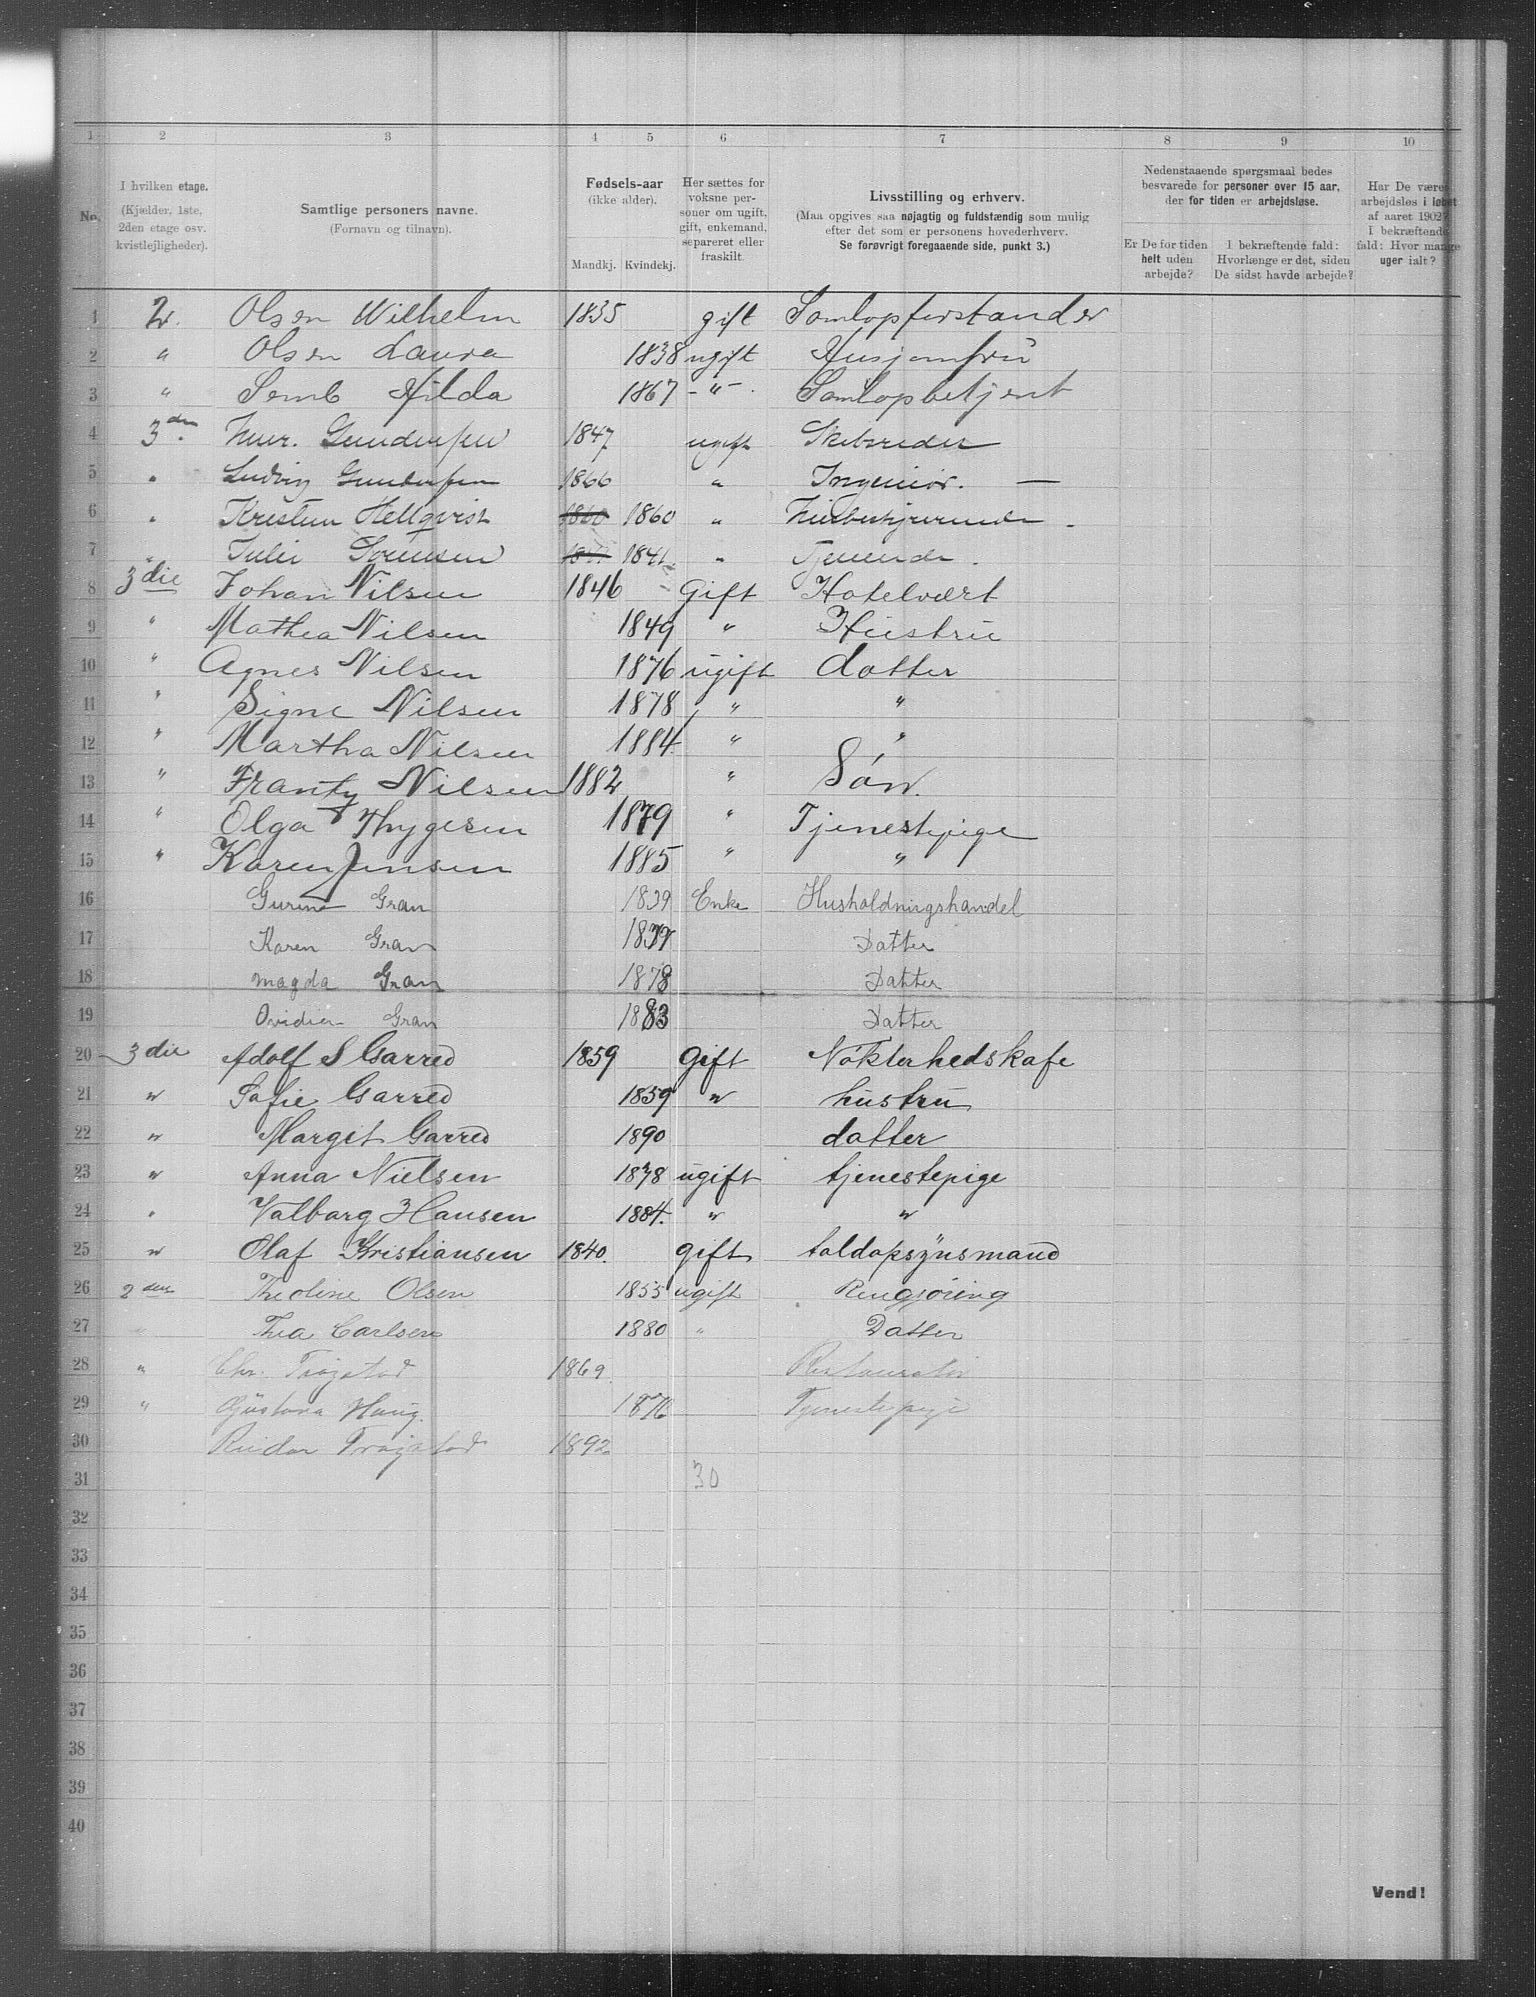 1 2 3 4 5 6 7 8 9 10
No.
I hvilken etage.
(Kjælder, 1ste,
2den etage osv.
kvistlejligheder).
Samtlige personers navne.
(Fornavn og tilnavn).
Fødsels-aar
(ikke alder).
Mandkj. Kvindekj.
Her sættes for
voksne per-
soner om ugift,
gift, enkemand,
separeret eller
fraskilt
Livsstilling og erhverv.
(Maa opgives saa nøjagtig og fuldstændig som mulig
efter det som er personens hovederhverv.
Se forøvrigt foregaaende side, punkt 3.)
Nedenstaaende spørgsmaal bedes
besvarede for personer over 15 aar,
der for tiden er arbejdsløse.
Er De for tiden
helt uden
arbejde?
I bekræftende fald:
Hvorlænge er det, siden
De sidst havde arbejde?
Har De været
arbejdsløs i løbet
af aaret 1902?
I bekræftende
fald: Hvor mange
uger ialt?
1 2. Olsen Wilhelm 1835 gift Samlopforstander
2 " Olsen Laura 1838 ugift Husjomfru
3 " Semb Hilda 1867 - " - Samlopbetjent
4 3den Gundersen 1847 ugift Skibsreder
5 " Ludvig Gundersen 1866 " Ingeniør. —
6 " Hellqvist 1860 1860 "
7 " Julie Sørensen 1841 " Tjenende.
8 3die Johan Nilsen 1846 Gift Hotelvært
9 " Mathea Nilsen 1849 " Hustru
10 " Agnes Nilsen 1876 ugift datter
11 " Signe Nilsen 1878 " "
12 " Martha Nilsen 1884 " "
13 " Frantz Nilsen 1882 " Søn.
14 " Olga Thygesen 1879 " Tjenestepige
15 " Karen Jensen 1885 " "
16 Gurine Gran 1839 Enke Husholdningshandel
17 Karen Gran Datter
18 Magda Gran 1878 Datter
19 Gran 1883 Datter
20 3die Adolf S Garred 1859 Gift Nøkterhedskafe
21 " Sofie Garred 1859 " hustru
22 " Margit Garred 1890 datter
23 " Anna Nielsen 1878 ugift tjenestepige
24 " Valborg Hansen 1884. " "
25 " Olaf Kristiansen 1840. gift toldopsynsmand
26 2den Theoline Olsen 1855 ugift Rengjøring
27 " Thea Carlsen 1880 " Datter
28 " Chr. Trøgstad 1869
29 " Gustava Haug. 1876 Tjenestepige
30 Reidar Trøgstad 1892
31 30
32
33
34
35
36
37
38
39
40
Vend!